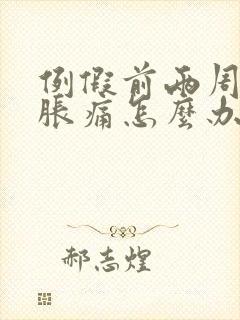 例假前两周
胀痛怎麽办
郝志煌